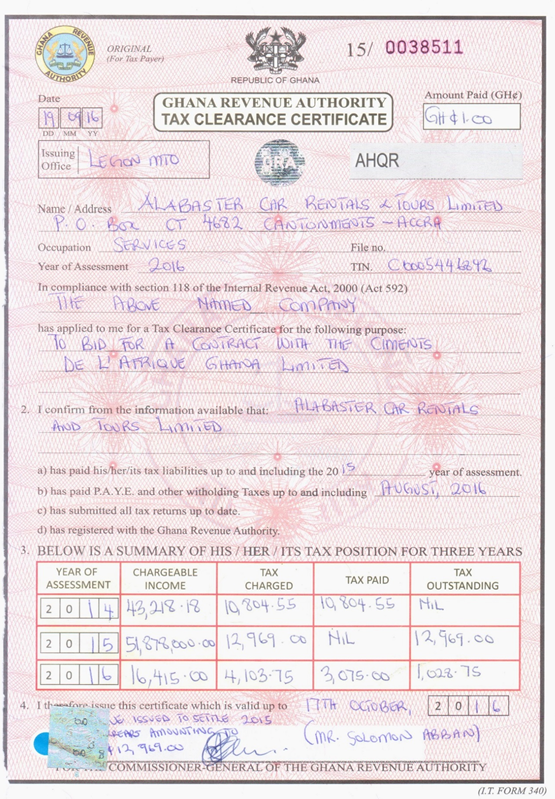 GHANA REVENUE
AUTHORITY
ORIGINAL
(For Tax Payer)
REPUBLIC OF GHANA
15/ 0038511
Date
19 09 16
DD MM YY
GHANA REVENUE AUTHORITY
TAX CLEARANCE CERTIFICATE
Amount Paid (GH¢)
GH¢1.00
Issuing Office LEGON MTO
GRA
AHQR
Name / Address ALABASTER CAR RENTALS & TOURS LIMITED
P. O. BOX CT 4682 CANTONMENTS - ACCRA
Occupation SERVICES File no.
Year of Assessment 2016 TIN. C0005446892
In compliance with section 118 of the Internal Revenue Act, 2000 (Act 592)
THE ABOVE NAMED COMPANY
has applied to me for a Tax Clearance Certificate for the following purpose:
TO BID FOR A CONTRACT WITH THE CIMENTS
DE L'AFRIQUE GHANA LIMITED
2. I confirm from the information available that: ALABASTER CAR RENTALS
AND TOURS LIMITED
a) has paid his/her/its tax liabilities up to and including the 2015 year of assessment.
b) has paid P.A.Y.E. and other witholding Taxes up to and including AUGUST, 2016
c) has submitted all tax returns up to date.
d) has registered with the Ghana Revenue Authority.
3. BELOW IS A SUMMARY OF HIS / HER / ITS TAX POSITION FOR THREE YEARS
YEAR OF ASSESSMENT CHARGEABLE INCOME TAX CHARGED TAX PAID TAX OUTSTANDING
2014 43,218.18 10,804.55 10,804.55 NIL
2015 51,878,000.00 12,969.00 NIL 12,969.00
2016 16,415.00 4,103.75 3,075.00 1,028.75
4. I therefore issue this certificate which is valid up to 17TH OCTOBER, 2016
ISSUED TO SETTLE 2015
AMOUNTING TO
12,969.00
(MR. SOLOMON ABBAN)
FOR THE COMMISSIONER-GENERAL OF THE GHANA REVENUE AUTHORITY
(I.T. FORM 340)